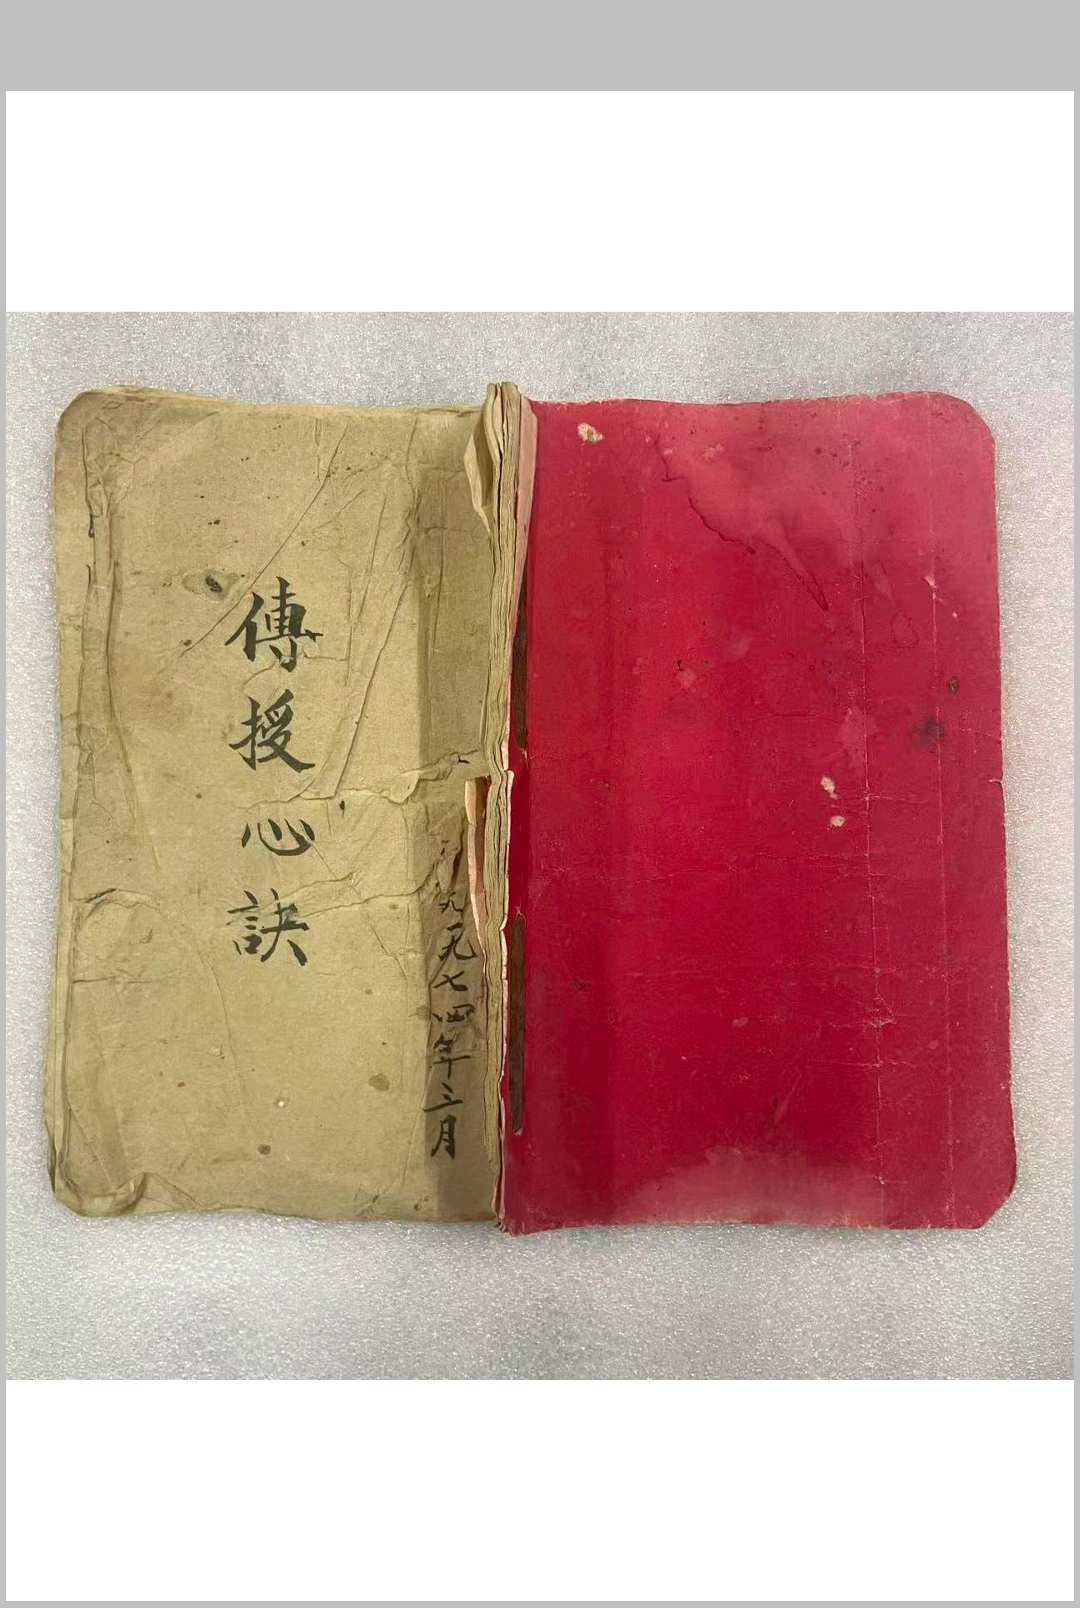 一九七四年三月
傳授心訣